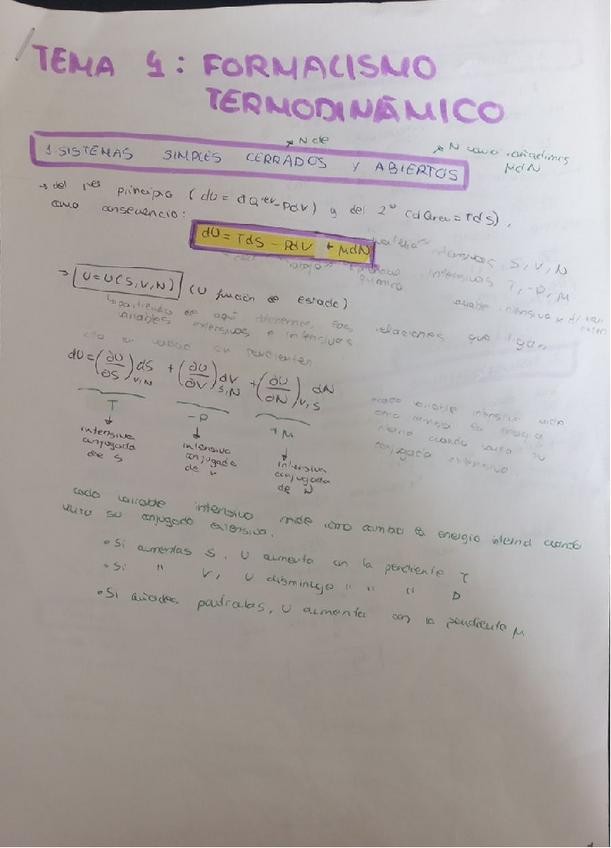 TEMA 4: FORMALISMO
TERMODINÁMICO
N de
1. SISTEMAS SIMPLES CERRADOS Y ABIERTOS
N como añadimos
μdN
→ del 1er principio (dU = dQrev - pdV) y del 2º (dQrev = TdS),
como consecuencia:
dU = TdS - pdV + μdN
S, V, N
intensivas T, -P, μ
químico
→ U = U(S, V, N) (U función de estado)
partiendo de aquí obtenemos las relaciones que ligan
variables extensivas e intensivas
dU = (∂U/∂S)V,N dS + (∂U/∂V)S,N dV + (∂U/∂N)V,S dN
T -P +μ
intensiva conjugada de S
intensiva conjugada de V
intensiva conjugada de N
cada variable intensiva mide
cómo cambia la energía
interna cuando varía su
conjugada extensiva
cada variable intensiva mide cómo cambia la energía interna cuando
varía su conjugada extensiva.
• Si aumentas S, U aumenta con la pendiente T
• Si " V, U disminuye " " " P
• Si añades partículas, U aumenta con la pendiente μ